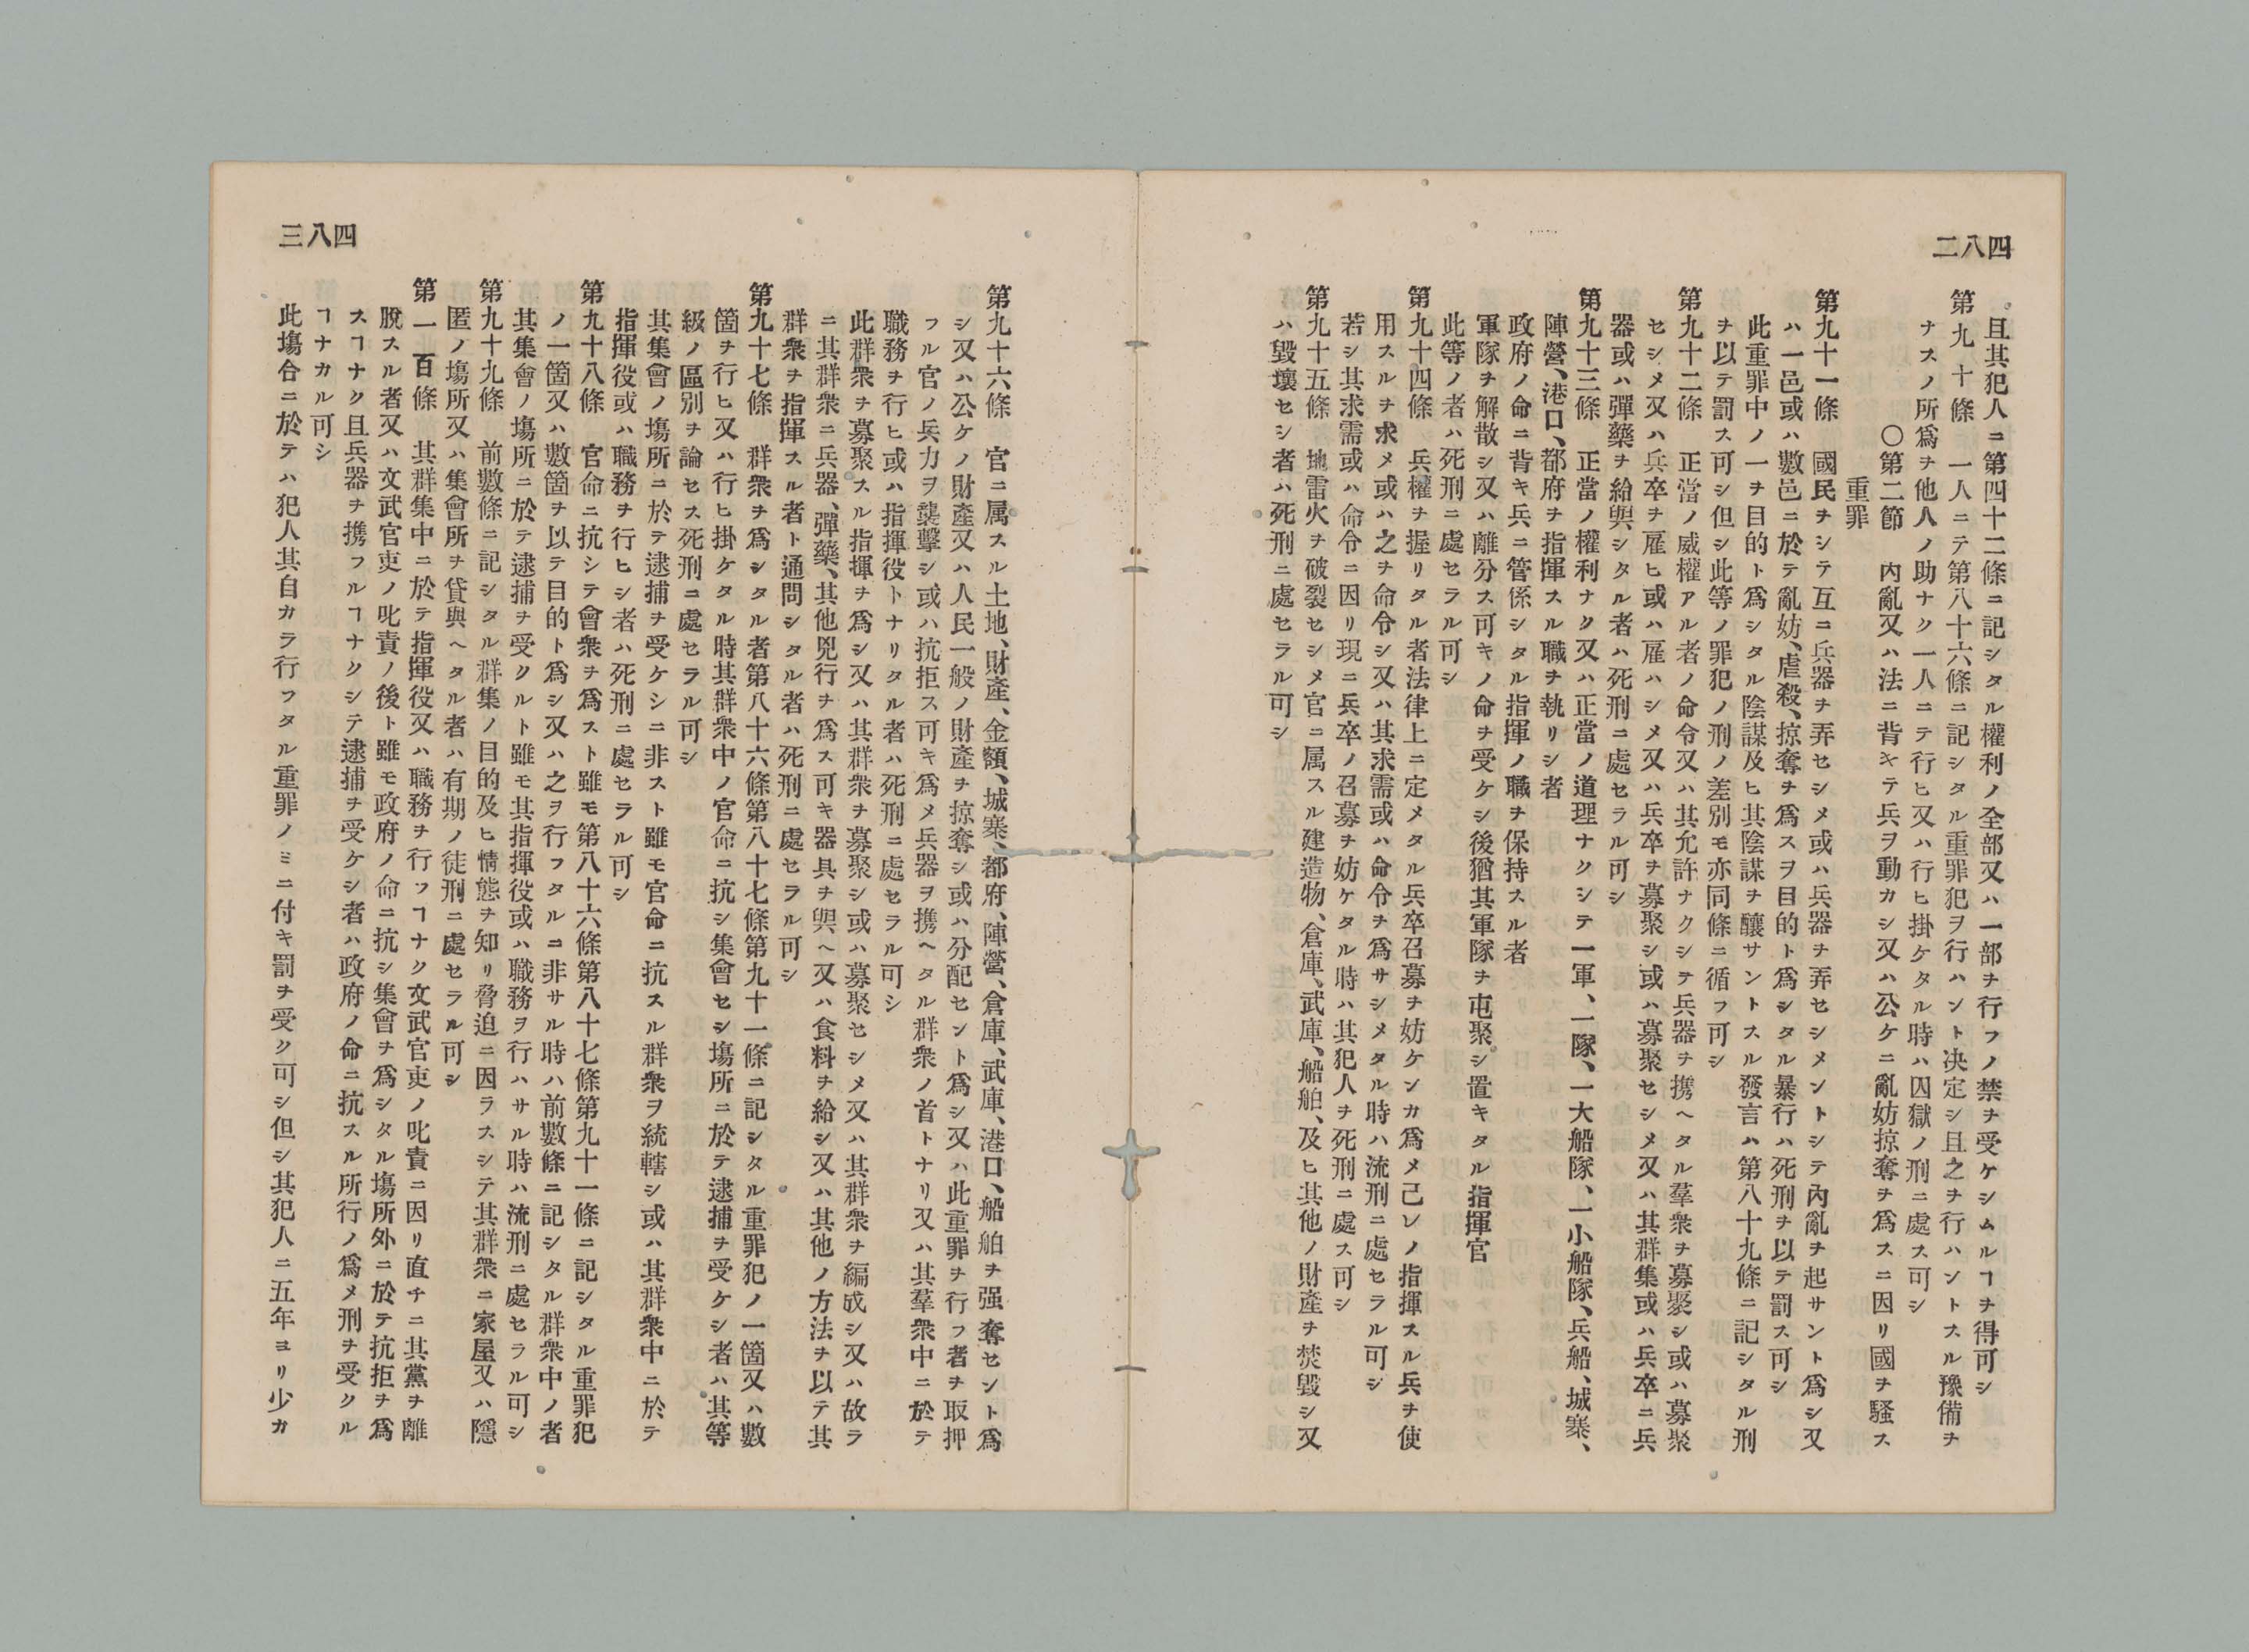 四八二
且其犯人ニ第四十二條ニ記シタル權利ノ全部又ハ一部ヲ行フノ禁ヲ受ケシムルヿヲ得可シ
第九十條　一人ニテ第八十六條ニ記シタル重罪犯ヲ行ハント决定シ且之ヲ行ハントスル豫備ヲ
ナスノ所爲ヲ他人ノ助ナク一人ニテ行ヒ又ハ行ヒ掛ケタル時ハ囚獄ノ刑ニ處ス可シ
〇第二節　內亂又ハ法ニ背キテ兵ヲ動カシ又ハ公ケニ亂妨掠奪ヲ爲スニ因リ國ヲ騷ス
重罪
第九十一條　國民ヲシテ互ニ兵器ヲ弄セシメ或ハ兵器ヲ弄セシメントシテ內亂ヲ起サント爲シ又
ハ一邑或ハ數邑ニ於テ亂妨、虐殺、掠奪ヲ爲スヲ目的ト爲シタル暴行ハ死刑ヲ以テ罰ス可シ
此重罪中ノ一ヲ目的ト爲シタル陰謀及ヒ其陰謀ヲ釀サントスル發言ハ第八十九條ニ記シタル刑
ヲ以テ罰ス可シ但シ此等ノ罪犯ノ刑ノ差別モ亦同條ニ循フ可シ
第九十二條　正當ノ威權アル者ノ命令又ハ其允許ナクシテ兵器ヲ携ヘタル羣衆ヲ募聚シ或ハ募聚
セシメ又ハ兵卒ヲ雇ヒ或ハ雇ハシメ又ハ兵卒ヲ募聚シ或ハ募聚セシメ又ハ其群集或ハ兵卒ニ兵
器或ハ彈藥ヲ給與シタル者ハ死刑ニ處セラル可シ
第九十三條　正當ノ權利ナク又ハ正當ノ道理ナクシテ一軍、一隊、一大船隊、一小船隊、兵船、城寨、
陣營、港口、都府ヲ指揮スル職ヲ執リシ者
政府ノ命ニ背キ兵ニ管係シタル指揮ノ職ヲ保持スル者
軍隊ヲ解散シ又ハ離分ス可キノ命ヲ受ケシ後猶其軍隊ヲ屯聚シ置キタル指揮官
此等ノ者ハ死刑ニ處セラル可シ
第九十四條　兵權ヲ握リタル者法律上ニ定メタル兵卒召募ヲ妨ケンカ爲メ己レノ指揮スル兵ヲ使
用スルヲ求メ或ハ之ヲ命令シ又ハ其求需或ハ命令ヲ爲サシメタル時ハ流刑ニ處セラル可シ
若シ其求需或ハ命令ニ因リ現ニ兵卒ノ召募ヲ妨ケタル時ハ其犯人ヲ死刑ニ處ス可シ
第九十五條　地雷火ヲ破裂セシメ官ニ属スル建造物、倉庫、武庫、船舶、及ヒ其他ノ財產ヲ焚毀シ又
ハ毀壞セシ者ハ死刑ニ處セラル可シ
四八三
第九十六條　官ニ属スル土地、財產、金額、城寨、都府、陣營、倉庫、武庫、港口、船舶ヲ强奪セント爲
シ又ハ公ケノ財產又ハ人民一般ノ財產ヲ掠奪シ或ハ分配セント爲シ又ハ此重罪ヲ行フ者ヲ取押
フル官ノ兵力ヲ襲擊シ或ハ抗拒ス可キ爲メ兵器ヲ携ヘタル群衆ノ首トナリ又ハ其羣衆中ニ於テ
職務ヲ行ヒ或ハ指揮役トナリタル者ハ死刑ニ處セラル可シ
此群衆ヲ募聚スル指揮ヲ爲シ又ハ其群衆ヲ募聚シ或ハ募聚セシメ又ハ其群衆ヲ編成シ又ハ故ラ
ニ其群衆ニ兵器、彈藥、其他兇行ヲ爲ス可キ器具ヲ與ヘ又ハ食料ヲ給シ又ハ其他ノ方法ヲ以テ其
群衆ヲ指揮スル者ト通問シタル者ハ死刑ニ處セラル可シ
第九十七條　群衆ヲ爲シタル者第八十六條第八十七條第九十一條ニ記シタル重罪犯ノ一箇又ハ數
箇ヲ行ヒ又ハ行ヒ掛ケタル時其群衆中ノ官命ニ抗シ集會セシ塲所ニ於テ逮捕ヲ受ケシ者ハ其等
級ノ區別ヲ論セス死刑ニ處セラル可シ
其集會ノ塲所ニ於テ逮捕ヲ受ケシニ非スト雖モ官命ニ抗スル群衆ヲ統轄シ或ハ其群衆中ニ於テ
指揮役或ハ職務ヲ行ヒシ者ハ死刑ニ處セラル可シ
第九十八條　官命ニ抗シテ會衆ヲ爲スト雖モ第八十六條第八十七條第九十一條ニ記シタル重罪犯
ノ一箇又ハ數箇ヲ以テ目的ト爲シ又ハ之ヲ行フタルニ非サル時ハ前數條ニ記シタル群衆中ノ者
其集會ノ塲所ニ於テ逮捕ヲ受クルト雖モ其指揮役或ハ職務ヲ行ハサル時ハ流刑ニ處セラル可シ
第九十九條　前數條ニ記シタル群集ノ目的及ヒ情態ヲ知リ脅迫ニ因ラスシテ其群衆ニ家屋又ハ隱
匿ノ塲所又ハ集會所ヲ貸與ヘタル者ハ有期ノ徒刑ニ處セラル可シ
第一百條　其群集中ニ於テ指揮役又ハ職務ヲ行フヿナク文武官吏ノ叱責ニ因リ直チニ其黨ヲ離
脫スル者又ハ文武官吏ノ叱責ノ後ト雖モ政府ノ命ニ抗シ集會ヲ爲シタル塲所外ニ於テ抗拒ヲ爲
スヿナク且兵器ヲ携フルヿナクシテ逮捕ヲ受ケシ者ハ政府ノ命ニ抗スル所行ノ爲メ刑ヲ受クル
ヿナカル可シ
此塲合ニ於テハ犯人其自カラ行フタル重罪ノミニ付キ罰ヲ受ク可シ但シ其犯人ニ五年ヨリ少カ